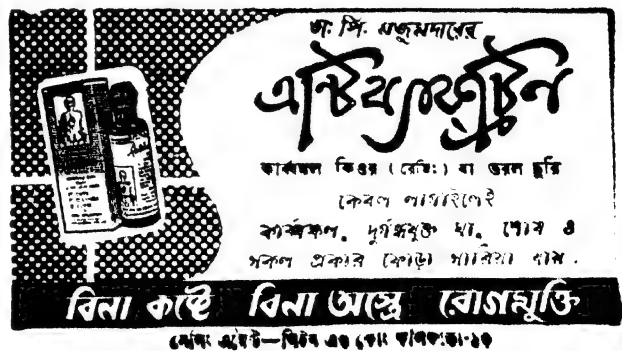 ডাঃ পি. মজুমদারের
এন্টিব্যাকট্রিন
কার্ব্বাঙ্কল কিওর (রেজিঃ) বা তরল ছুরি
কেবল লাগাইলেই
কার্ব্বাঙ্কল, দুর্গন্ধযুক্ত ঘা, শোষ ও
সকল প্রকার ফোড়া সারিয়া যায়.
বিনা কষ্টে বিনা অস্ত্রে রোগমুক্তি
এণ্ড কোং কলিকাতা-১৩